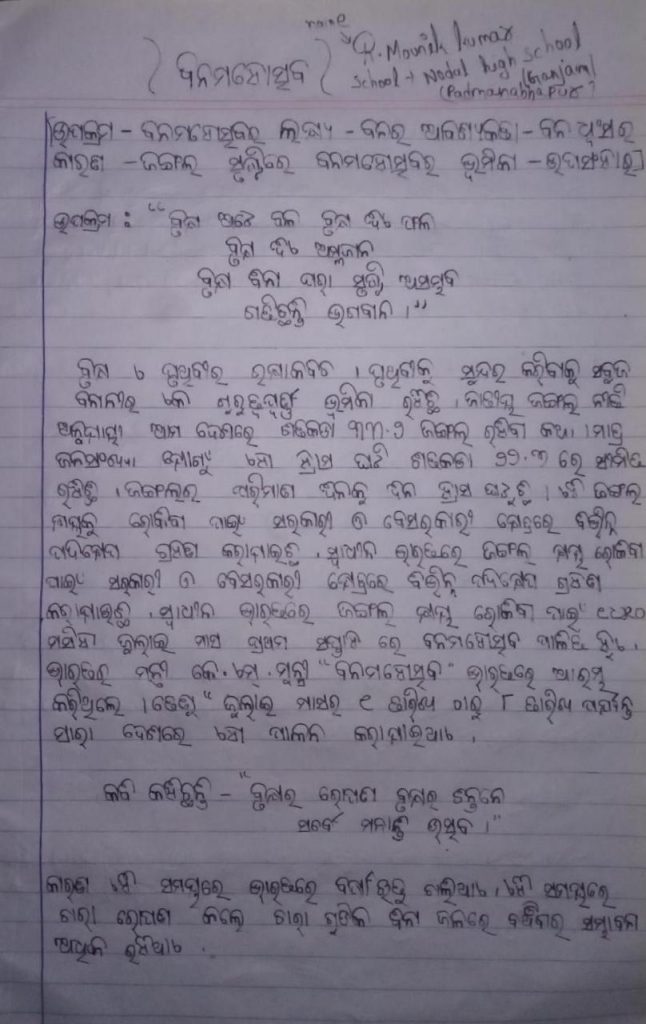 name
R. Mounik kumar
School → Nodal high school
(Ganjam)
(Padmanabhapur)
ବନମହୋତ୍ସବ
[ଉପକ୍ରମ - ବନମହୋତ୍ସବର ଲକ୍ଷ୍ୟ - ବନର ଆବଶ୍ୟକତା - ବନ ଧ୍ଵଂସର
କାରଣ - ଜଙ୍ଗଲ ସୃଷ୍ଟିରେ ବନମହୋତ୍ସବର ଭୂମିକା - ଉପସଂହାର]
ଉପକ୍ରମ : “ବୃକ୍ଷ ଅଟେ ବଳ ବୃକ୍ଷ ଦିଏ ଫଳ
ବୃକ୍ଷ ଦିଏ ଅମ୍ଳଜାନ
ବୃକ୍ଷ ବିନା ପରା ସୃଷ୍ଟି ଅସମ୍ଭବ
ଗଢିଛନ୍ତି ଭଗବାନ ।”
ବୃକ୍ଷ ଏ ପୃଥିବୀର ରକ୍ଷାକବଚ । ପୃଥିବୀକୁ ସୁନ୍ଦର କରିବାକୁ ସବୁଜ
ବନାନୀର ଏକ ଗୁରୁତ୍ୱପୂର୍ଣ୍ଣ ଭୂମିକା ରହିଛି । ଜାତୀୟ ଜଙ୍ଗଲ ନୀତି
ଅନୁଯାୟୀ ଆମ ଦେଶରେ ଶତକଡା ୩୩.୨ ଜଙ୍ଗଲ ରହିବା କଥା । ମାତ୍ର
ଜନସଂଖ୍ୟା ଯୋଗୁଁ ଏହା ହ୍ରାସ ଘଟି ଶତକଡା ୨୨.୩ ରେ ସୀମିତ
ରହିଛି । ଜଙ୍ଗଲର ପରିମାଣ ଦିନକୁ ଦିନ ହ୍ରାସ ଘଟୁଛି । ଏହି ଜଙ୍ଗଲ
କ୍ଷୟକୁ ରୋକିବା ପାଇଁ ସରକାରୀ ଓ ବେସରକାରୀ କ୍ଷେତ୍ରରେ ବିଭିନ୍ନ
ପଦକ୍ଷେପ ଗ୍ରହଣ କରାଯାଇଛି । ସ୍ୱାଧୀନ ଭାରତରେ ଜଙ୍ଗଲ କ୍ଷୟ ରୋକିବା
ପାଇଁ ସରକାରୀ ଓ ବେସରକାରୀ କ୍ଷେତ୍ରରେ ବିଭିନ୍ନ ପଦକ୍ଷେପ ଗ୍ରହଣ
କରାଯାଇଛି । ସ୍ୱାଧୀନ ଭାରତରେ ଜଙ୍ଗଲ କ୍ଷୟ ରୋକିବା ପାଇଁ ୧୯୫୦
ମସିହା ଜୁଲାଇ ମାସ ପ୍ରଥମ ସପ୍ତାହ ରେ ବନମହୋତ୍ସବ ପାଳିତ ହୁଏ ।
ଭାରତର ମନ୍ତ୍ରୀ କେ.ଏମ୍.ମୁନ୍ସୀ “ବନମହୋତ୍ସବ” ଭାରତରେ ଆରମ୍ଭ
କରିଥିଲେ । ତେଣୁ “ଜୁଲାଇ ମାସର ୧ ତାରିଖ ଠାରୁ ୮ ତାରିଖ ପର୍ଯ୍ୟନ୍ତ
ସାରା ଦେଶରେ ଏହା ପାଳନ କରାଯାଇଥାଏ ।
କବି କହିଛନ୍ତି - “ବୃକ୍ଷର ରୋପଣ ବୃକ୍ଷର ଯତନେ
ସର୍ବେ ମନାନ୍ତି ଉତ୍ସବ ।”
କାରଣ ଏହି ସମୟରେ ଭାରତରେ ବର୍ଷାଋତୁ ଚାଲିଥାଏ । ଏହି ସମୟରେ
ଚାରା ରୋପଣ କଲେ ଚାରା ଗୁଡିକ ବିନା ଜଳରେ ବଞ୍ଚିବାର ସମ୍ଭାବନା
ଅଧିକ ରହିଥାଏ ।